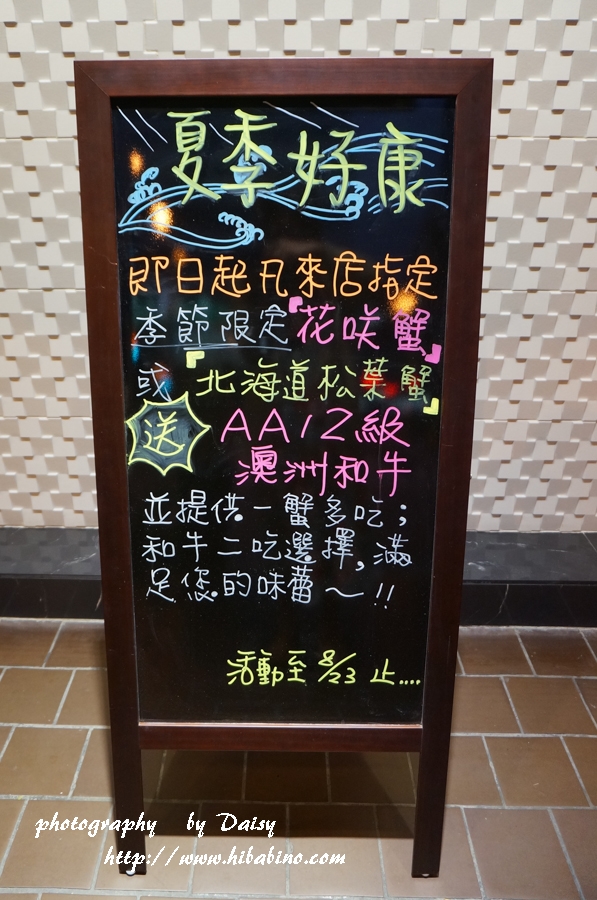 夏季好康
即日起凡來店指定
季節限定『花咲蟹』
或『北海道松葉蟹』
送 AA12級
澳洲和牛
並提供一蟹多吃;
和牛二吃選擇,滿
足您的味蕾~!!
活動至 8/23 止....
photography by Daisy
http://www.hibabino.com